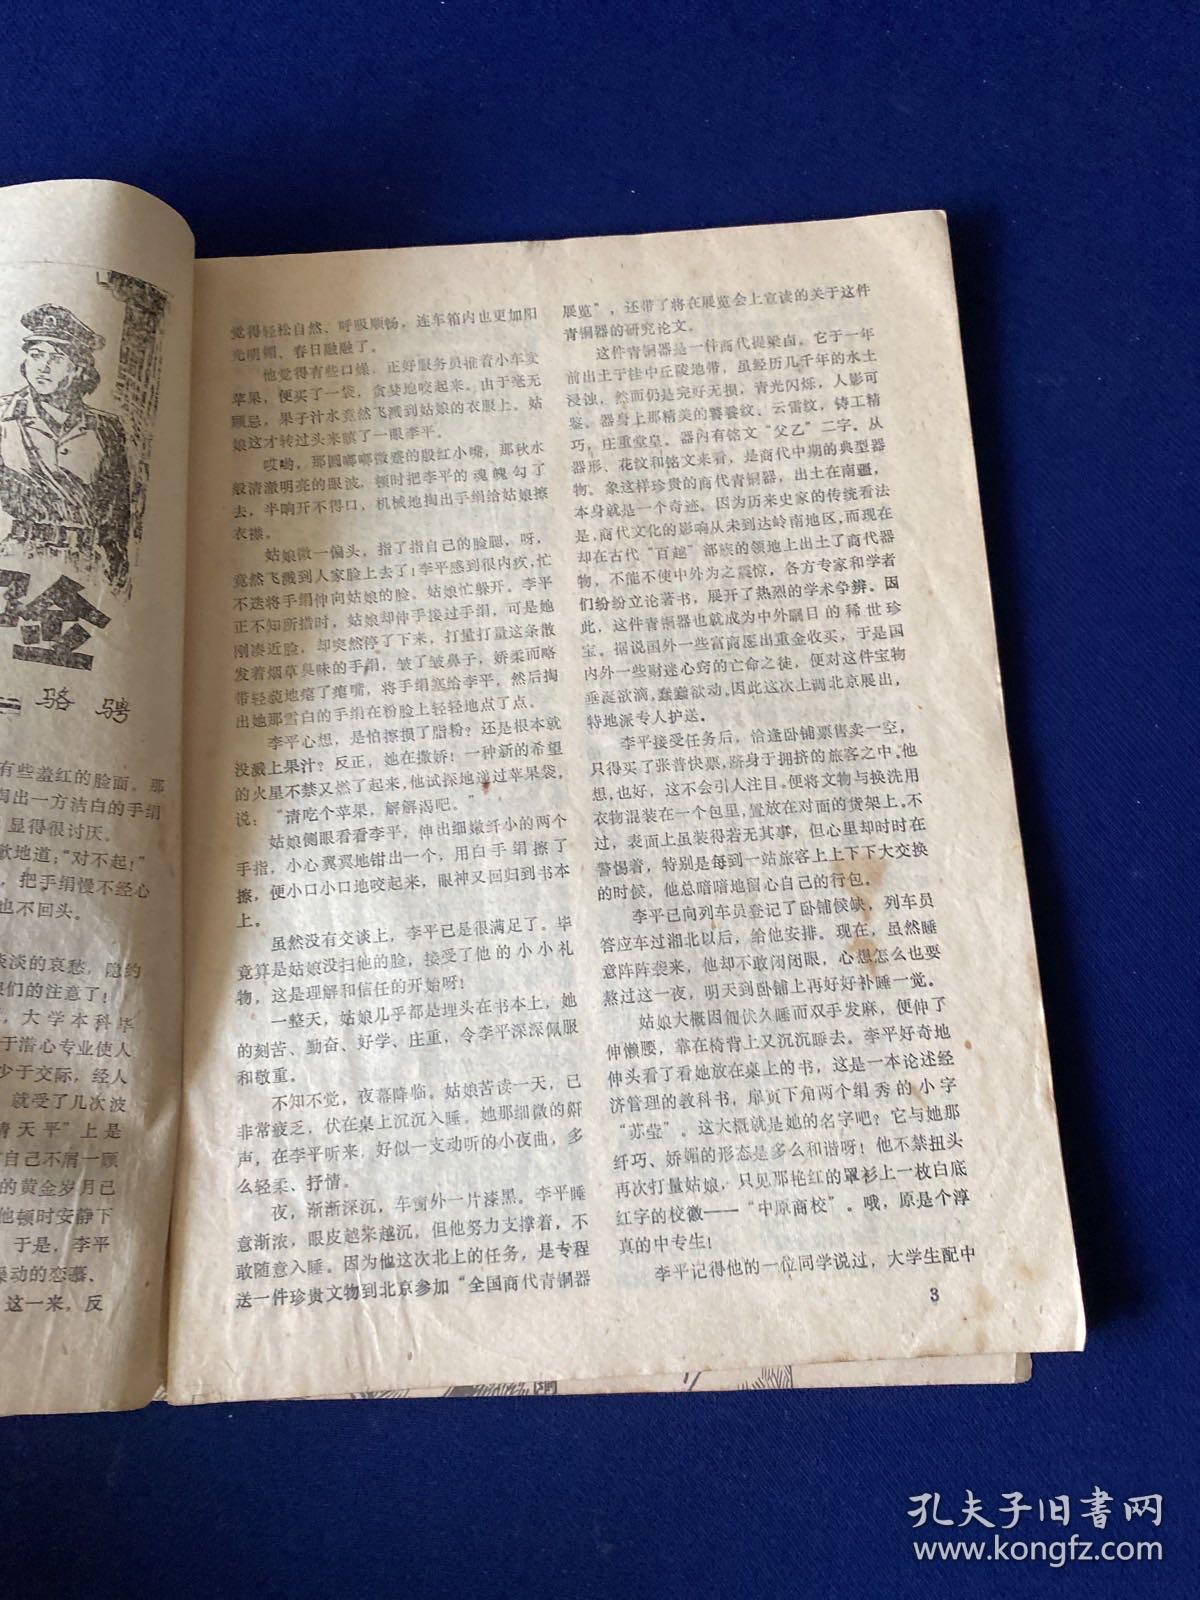 险
骆骋
有些羞红的脸面。那
掏出一方洁白的手绢
显得很讨厌。
歉地道；“对不起！”
，把手绢慢不经心
也不回头。
淡淡的哀愁，隐约
娘们的注意了！
，大学本科毕
于潜心专业使人
少于交际，经人
就受了几次波
青天平”上是
自己不屑一顾
的黄金岁月已
他顿时安静下
于是，李平
躁动的恋慕、
这一来，反
觉得轻松自然、呼吸顺畅，连车箱内也更加阳
光明媚、春日融融了。
他觉得有些口燥，正好服务员推着小车卖
苹果，便买了一袋，贪婪地咬起来。由于毫无
顾忌，果子汁水竟然飞溅到姑娘的衣服上。姑
娘这才转过头来瞋了一眼李平。
哎哟，那圆嘟嘟微蹙的殷红小嘴，那秋水
般清澈明亮的眼波，顿时把李平的魂魄勾了
去，半晌开不得口，机械地掏出手绢给姑娘擦
衣襟。
姑娘微一偏头，指了指自己的脸腮，呀，
竟然飞溅到人家脸上去了！李平感到很内疚，忙
不迭将手绢伸向姑娘的脸。姑娘忙躲开。李平
正不知所措时，姑娘却伸手接过手绢，可是她
刚凑近脸，却突然停了下来，打量打量这条散
发着烟草臭味的手绢，皱了皱鼻子，娇柔而略
带轻亵地瘪了瘪嘴，将手绢塞给李平，然后掏
出她那雪白的手绢在粉脸上轻轻地点了点。
李平心想，是怕擦损了脂粉？还是根本就
没溅上果汁？反正，她在撒娇！一种新的希望
的火星不禁又燃了起来，他试探地递过苹果袋，
说：“请吃个苹果，解解渴吧。”
姑娘侧眼看看李平，伸出细嫩纤小的两个
手指，小心翼翼地钳出一个，用白手绢擦了
擦，便小口小口地咬起来，眼神又回归到书本
上。
虽然没有交谈上，李平已是很满足了。毕
竟算是姑娘没扫他的脸，接受了他的小小礼
物，这是理解和信任的开始呀！
一整天，姑娘几乎都是埋头在书本上，她
的刻苦、勤奋、好学、庄重，令李平深深佩服
和敬重。
不知不觉，夜幕降临。姑娘苦读一天，已
非常疲乏，伏在桌上沉沉入睡。她那细微的鼾
声，在李平听来，好似一支动听的小夜曲，多
么轻柔、抒情。
夜，渐渐深沉，车窗外一片漆黑。李平睡
意渐浓，眼皮越来越沉，但他努力支撑着，不
敢随意入睡。因为他这次北上的任务，是专程
送一件珍贵文物到北京参加“全国商代青铜器
展览”，还带了将在展览会上宣读的关于这件
青铜器的研究论文。
这件青铜器是一件商代提梁卣。它于一年
前出土于桂中丘陵地带，虽经历几千年的水土
浸蚀，然而仍是完好无损，青光闪烁，人影可
鉴。器身上那精美的饕餮纹、云雷纹，铸工精
巧，庄重堂皇。器内有铭文“父乙”二字。从
器形、花纹和铭文来看，是商代中期的典型器
物。象这样珍贵的商代青铜器，出土在南疆，
本身就是一个奇迹。因为历来史家的传统看法
是，商代文化的影响从未到达岭南地区，而现在
却在古代“百越”部族的领地上出土了商代器
物，不能不使中外为之震惊，各方专家和学者
们纷纷立论著书，展开了热烈的学术争辨。因
此，这件青铜器也就成为中外瞩目的稀世珍
宝。据说国外一些富商愿出重金收买，于是国
内外一些财迷心窍的亡命之徒，便对这件宝物
垂涎欲滴，蠢蠢欲动。因此这次上调北京展出，
特地派专人护送。
李平接受任务后，恰逢卧铺票售卖一空，
只得买了张普快票，跻身于拥挤的旅客之中。他
想，也好，这不会引人注目。便将文物与换洗用
衣物混装在一个包里，置放在对面的货架上。不
过，表面上虽装得若无其事，但心里却时时在
警惕着，特别是每到一站旅客上上下下大交换
的时候，他总暗暗地留心自己的行包。
李平已向列车员登记了卧铺候缺，列车员
答应车过湘北以后，给他安排。现在，虽然睡
意阵阵袭来，他却不敢闭闭眼，心想怎么也要
熬过这一夜，明天到卧铺上再好好补睡一觉。
姑娘大概因佃伏久睡而双手发麻，便伸了
伸懒腰，靠在椅背上又沉沉睡去。李平好奇地
伸头看了看她放在桌上的书，这是一本论述经
济管理的教科书，扉页下角两个绢秀的小字
“苏莹”。这大概就是她的名字吧？它与她那
纤巧、娇媚的形态是多么和谐呀！他不禁扭头
再次打量姑娘，只见那艳红的罩衫上一枚白底
红字的校徽——“中原商校”。哦，原是个淳
真的中专生！
李平记得他的一位同学说过，大学生配中
3
孔夫子旧书网
www.kongfz.com